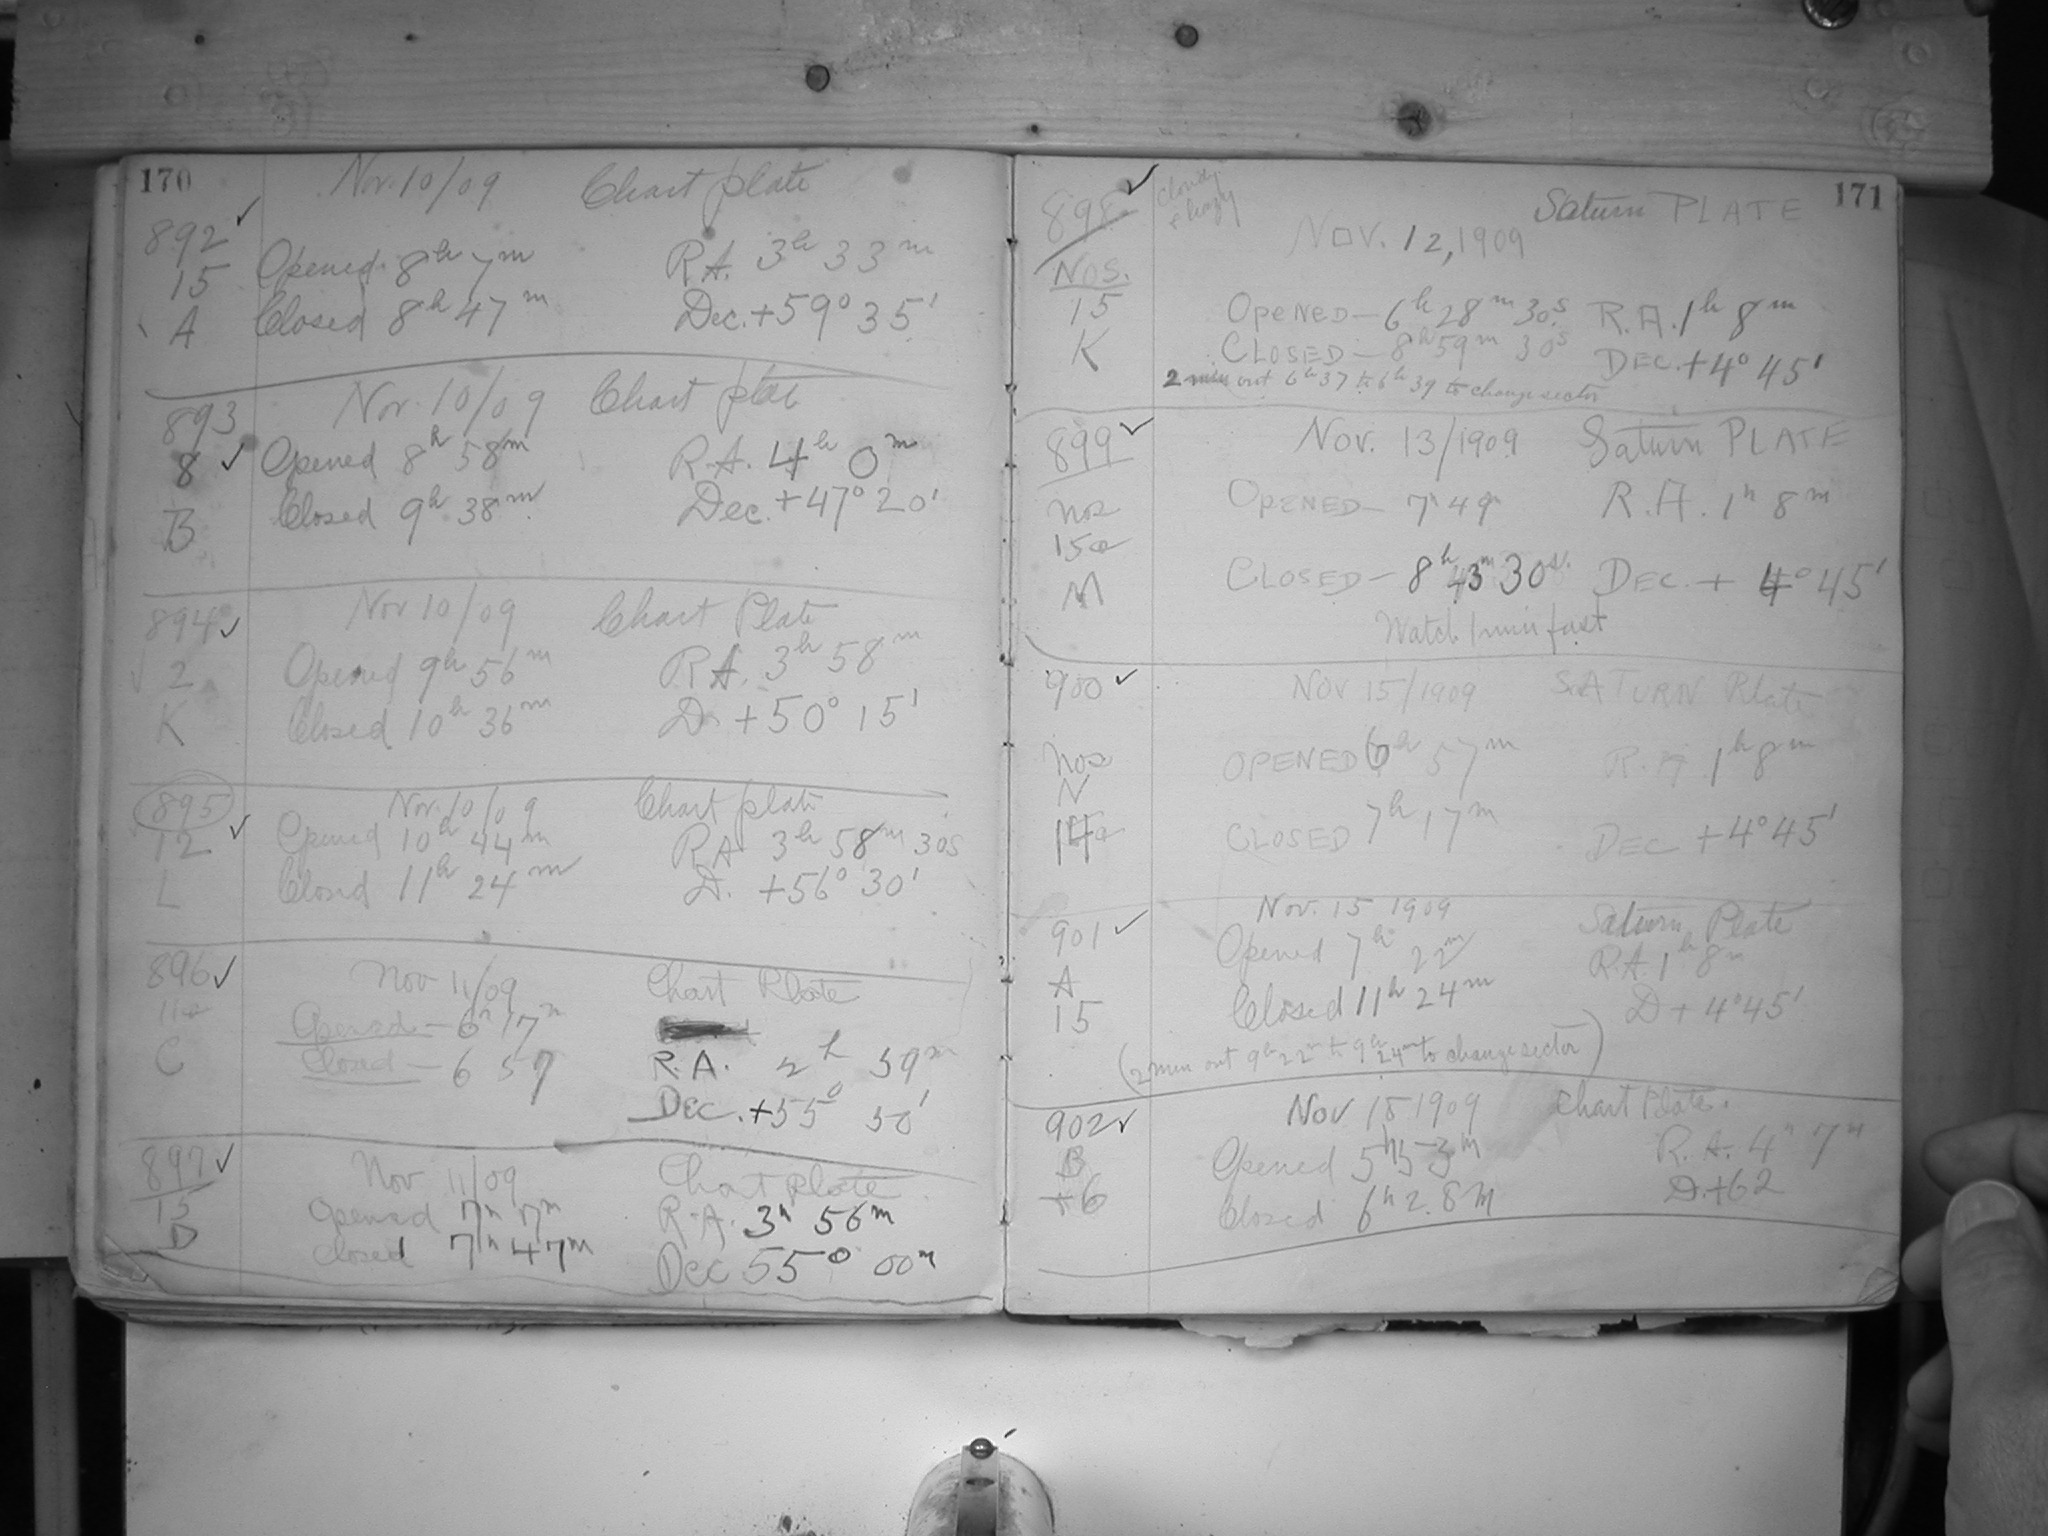 170
Nov. 10/09 Chart plate
892 ✓
15 Opened 8h 7m R.A. 3h 33m
A Closed 8h 47m Dec. +59° 35'
893 Nov. 10/09 Chart plate
8 ✓ Opened 8h 58m R.A. 4h 0m
B Closed 9h 38m Dec. +47° 20'
894 ✓ Nov 10/09 Chart Plate
2 Opened 9h 56m R.A. 3h 58m
K Closed 10h 36m D. +50° 15'
895 Nov. 10/09 Chart plate
12 ✓ Opened 10h 44m R.A 3h 58m 30s
L Closed 11h 24m D. +56° 30'
896 ✓ Nov 11/09 Chart Plate
11a Opened — 6h 17m
C Closed — 6 57 R.A. 2h 59m
Dec. +55° 50'
897 ✓ Nov 11/09 Chart plate
15 Opened 7h 7m R.A. 3h 56m
D Closed 7h 47m Dec 55° 00m
171
898 ✓ Cloudy & hazy Saturn PLATE
NOV. 12, 1909
NOS.
15 OPENED — 6h 28m 30s R.A. 1h 8m
K CLOSED — 8h 59m 30s DEC. +4° 45'
2 min out 6h 37 to 6h 39 to change sector
899 ✓ Nov. 13/1909 Saturn PLATE
nos OPENED — 7h 49 R.A. 1h 8m
15a
M CLOSED — 8h 43m 30s. DEC. + 4° 45'
Watch 1 min fast
900 ✓ NOV 15/1909 SATURN Plate
nos OPENED 6h 57m R.A. 1h 8m
N
14a CLOSED 7h 17m DEC +4° 45'
Nov. 15 1909 Saturn Plate
901 ✓ Opened 7h 22m R.A. 1h 8m
A Closed 11h 24m D + 4° 45'
15
(2 min out 9h 22m to 9h 24m to change sector)
902 ✓ Nov 18 1909 Chart Plate.
B Opened 5h 53m R.A. 4h 7m
6 Closed 6h 28m D. +62